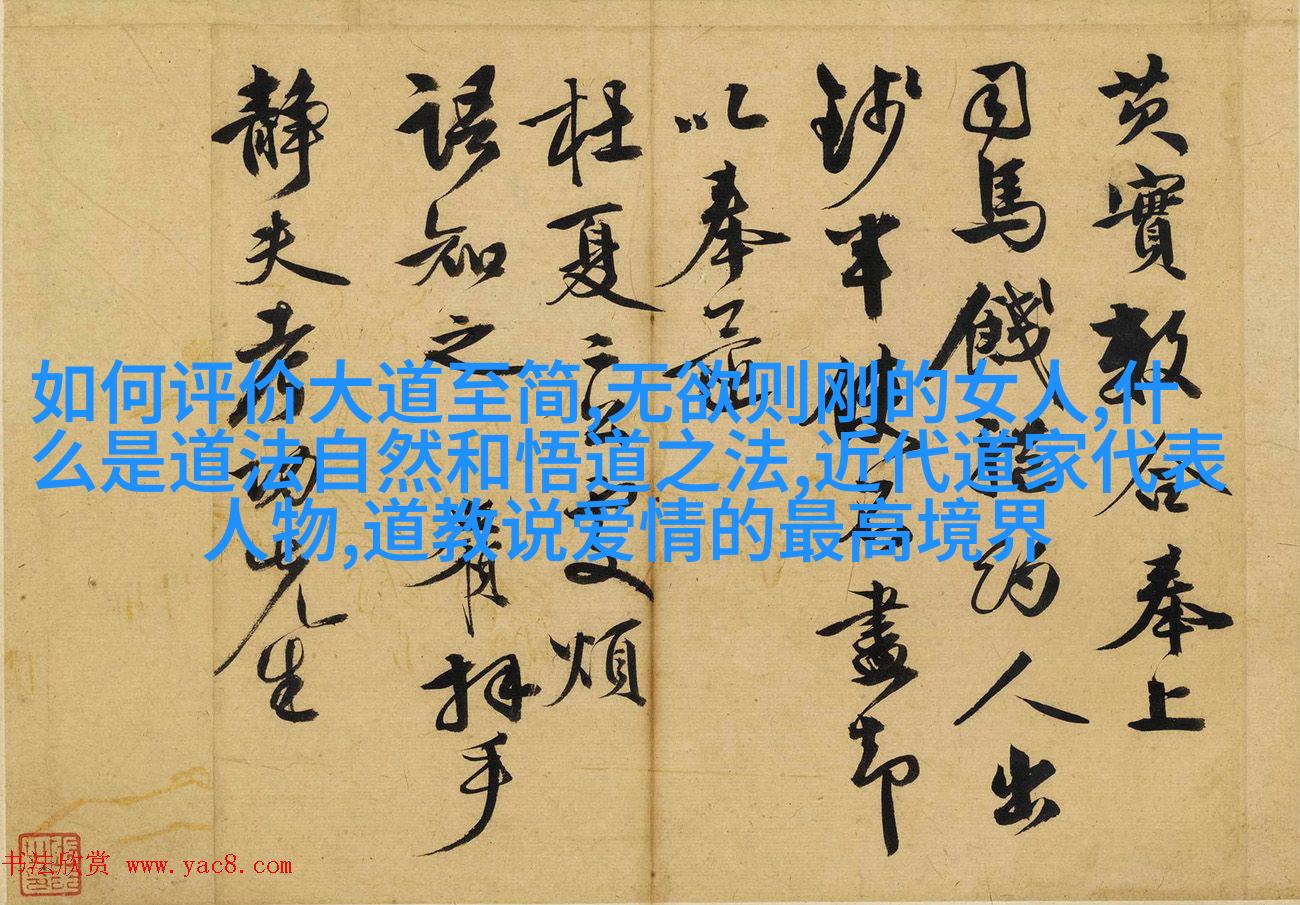 如何评价大道至简,无欲则刚的女人,什
么是道法自然和悟道之法,近代道家代表
人物,道教说爱情的最高境界
芡實數合奉上
司馬人出
半盡却
以奉
杜夏煩
語知之拜手
靜夫先生
书法欣赏 www.yac8.com